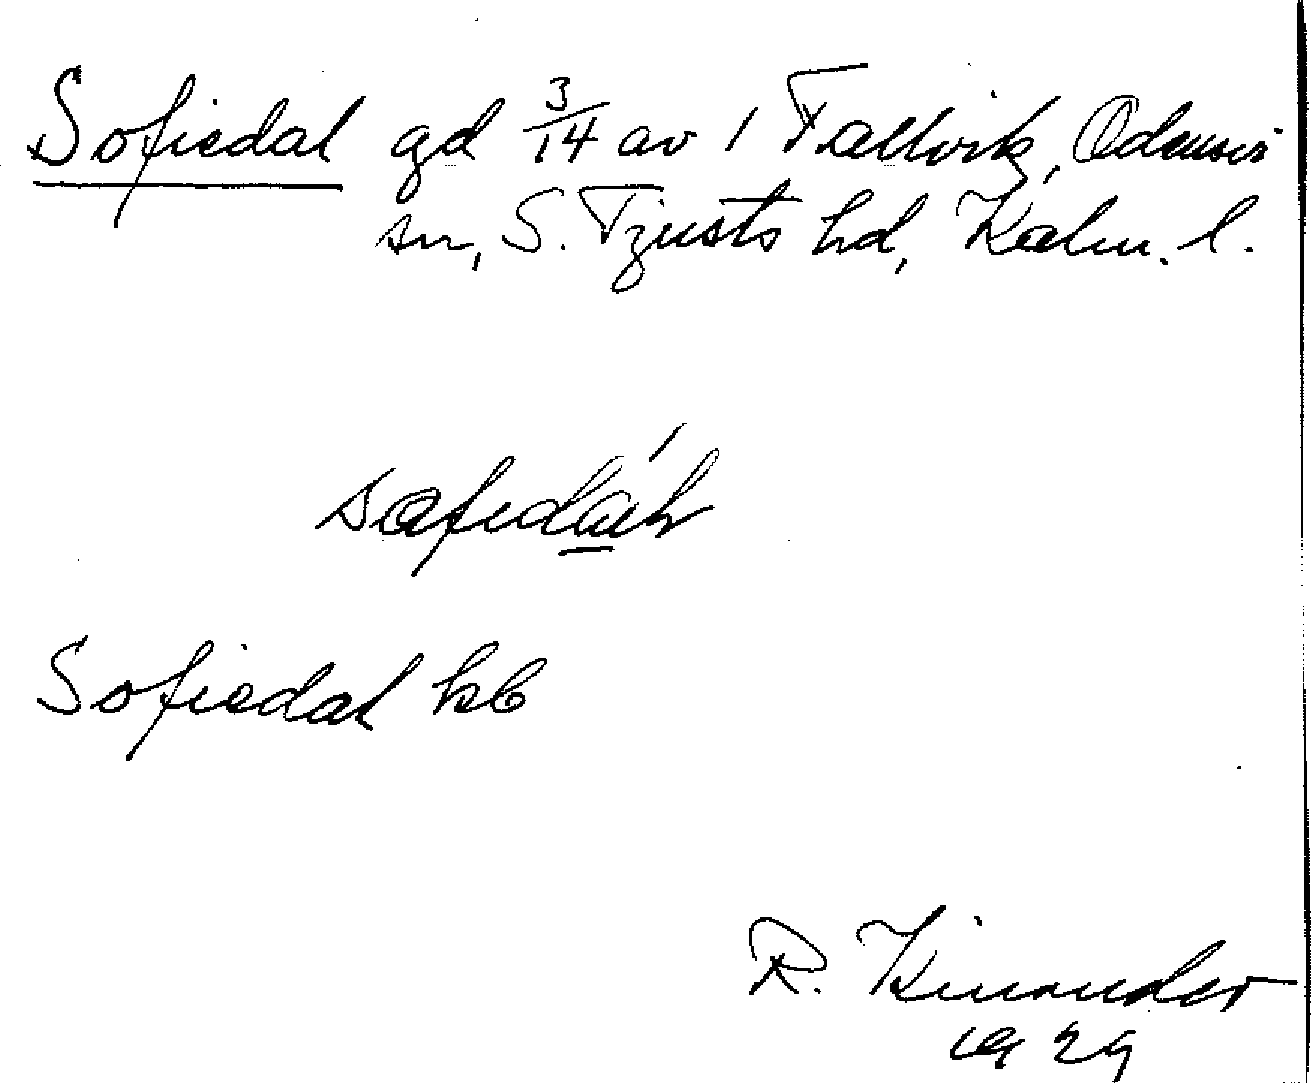 Sofiedal gd 3/14 av 1 Fallvik, Odensvi
sn, S. Tjusts hd, Kalm. l.
Sofiedal kb
R. Kinander
1929